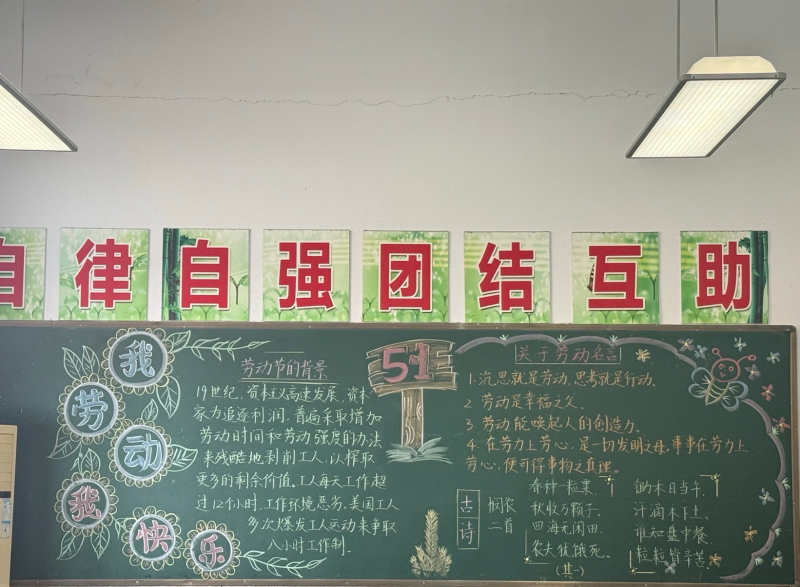 自律自强团结互助
我劳动我快乐
劳动节的背景
19世纪,资本主义高速发展、资本
家为追逐利润,普遍采取增加
劳动时间和劳动强度的办法
来残酷地剥削工人,以榨取
更多的剩余价值,工人每天工作超
过12个小时,工作环境恶劣,美国工人
多次爆发工人运动来争取
八小时工作制.
5·1
关于劳动名言
1.沉思就是劳动,思考就是行动.
2.劳动是幸福之父.
3.劳动能唤起人的创造力.
4.在劳力上劳心,是一切发明之母,事事在劳力上
劳心,便可得事物之真理。
古诗
悯农
二首
春种一粒粟
秋收万颗子.
四海无闲田.
农夫犹饿死。
(其一)
锄禾日当午.
汗滴禾下土
谁知盘中餐
粒粒皆辛苦